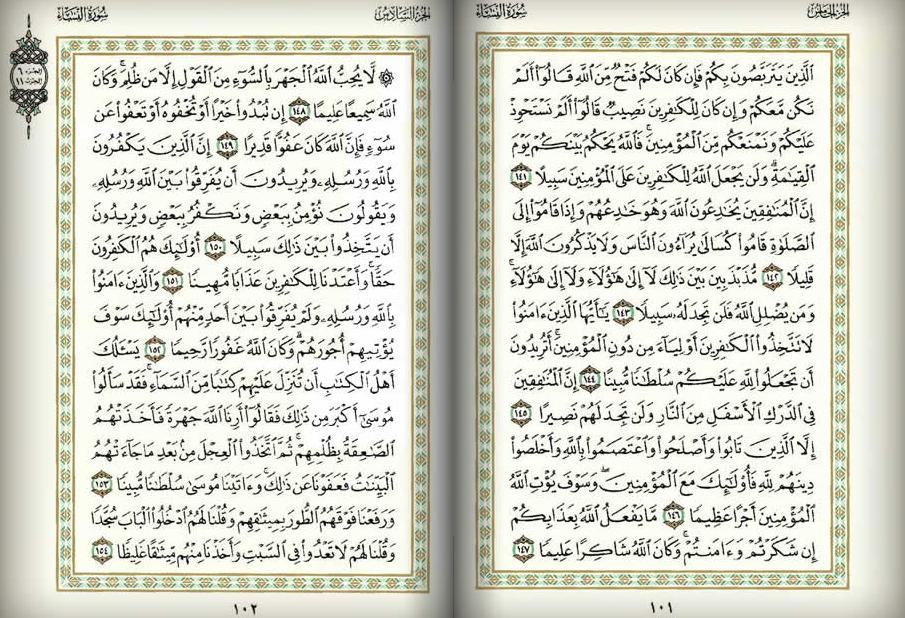 الجزء الخامس
سورة النساء
الَّذِينَ يَتَرَبَّصُونَ بِكُمْ فَإِن كَانَ لَكُمْ فَتْحٌ مِّنَ اللَّهِ قَالُوا أَلَمْ
نَكُن مَّعَكُمْ وَإِن كَانَ لِلْكَافِرِينَ نَصِيبٌ قَالُوا أَلَمْ نَسْتَحْوِذْ
عَلَيْكُمْ وَنَمْنَعْكُم مِّنَ الْمُؤْمِنِينَ ۚ فَاللَّهُ يَحْكُمُ بَيْنَكُمْ يَوْمَ
الْقِيَامَةِ ۗ وَلَن يَجْعَلَ اللَّهُ لِلْكَافِرِينَ عَلَى الْمُؤْمِنِينَ سَبِيلًا ١٤١
إِنَّ الْمُنَافِقِينَ يُخَادِعُونَ اللَّهَ وَهُوَ خَادِعُهُمْ وَإِذَا قَامُوا إِلَى
الصَّلَاةِ قَامُوا كُسَالَىٰ يُرَاءُونَ النَّاسَ وَلَا يَذْكُرُونَ اللَّهَ إِلَّا
قَلِيلًا ١٤٢ مُّذَبْذَبِينَ بَيْنَ ذَٰلِكَ لَا إِلَىٰ هَٰؤُلَاءِ وَلَا إِلَىٰ هَٰؤُلَاءِ ۚ
وَمَن يُضْلِلِ اللَّهُ فَلَن تَجِدَ لَهُ سَبِيلًا ١٤٣ يَا أَيُّهَا الَّذِينَ آمَنُوا
لَا تَتَّخِذُوا الْكَافِرِينَ أَوْلِيَاءَ مِن دُونِ الْمُؤْمِنِينَ ۚ أَتُرِيدُونَ
أَن تَجْعَلُوا لِلَّهِ عَلَيْكُمْ سُلْطَانًا مُّبِينًا ١٤٤ إِنَّ الْمُنَافِقِينَ
فِي الدَّرْكِ الْأَسْفَلِ مِنَ النَّارِ وَلَن تَجِدَ لَهُمْ نَصِيرًا ١٤٥
إِلَّا الَّذِينَ تَابُوا وَأَصْلَحُوا وَاعْتَصَمُوا بِاللَّهِ وَأَخْلَصُوا
دِينَهُمْ لِلَّهِ فَأُولَٰئِكَ مَعَ الْمُؤْمِنِينَ ۖ وَسَوْفَ يُؤْتِ اللَّهُ
الْمُؤْمِنِينَ أَجْرًا عَظِيمًا ١٤٦ مَّا يَفْعَلُ اللَّهُ بِعَذَابِكُمْ
إِن شَكَرْتُمْ وَآمَنتُمْ ۚ وَكَانَ اللَّهُ شَاكِرًا عَلِيمًا ١٤٧
١٠١
الجزء السادس
سورة النساء
الجزء ٦
الحزب ١١
۞ لَّا يُحِبُّ اللَّهُ الْجَهْرَ بِالسُّوءِ مِنَ الْقَوْلِ إِلَّا مَن ظُلِمَ ۚ وَكَانَ
اللَّهُ سَمِيعًا عَلِيمًا ١٤٨ إِن تُبْدُوا خَيْرًا أَوْ تُخْفُوهُ أَوْ تَعْفُوا عَن
سُوءٍ فَإِنَّ اللَّهَ كَانَ عَفُوًّا قَدِيرًا ١٤٩ إِنَّ الَّذِينَ يَكْفُرُونَ
بِاللَّهِ وَرُسُلِهِ وَيُرِيدُونَ أَن يُفَرِّقُوا بَيْنَ اللَّهِ وَرُسُلِهِ
وَيَقُولُونَ نُؤْمِنُ بِبَعْضٍ وَنَكْفُرُ بِبَعْضٍ وَيُرِيدُونَ
أَن يَتَّخِذُوا بَيْنَ ذَٰلِكَ سَبِيلًا ١٥٠ أُولَٰئِكَ هُمُ الْكَافِرُونَ
حَقًّا ۚ وَأَعْتَدْنَا لِلْكَافِرِينَ عَذَابًا مُّهِينًا ١٥١ وَالَّذِينَ آمَنُوا
بِاللَّهِ وَرُسُلِهِ وَلَمْ يُفَرِّقُوا بَيْنَ أَحَدٍ مِّنْهُمْ أُولَٰئِكَ سَوْفَ
يُؤْتِيهِمْ أُجُورَهُمْ ۗ وَكَانَ اللَّهُ غَفُورًا رَّحِيمًا ١٥٢ يَسْأَلُكَ
أَهْلُ الْكِتَابِ أَن تُنَزِّلَ عَلَيْهِمْ كِتَابًا مِّنَ السَّمَاءِ ۚ فَقَدْ سَأَلُوا
مُوسَىٰ أَكْبَرَ مِن ذَٰلِكَ فَقَالُوا أَرِنَا اللَّهَ جَهْرَةً فَأَخَذَتْهُمُ
الصَّاعِقَةُ بِظُلْمِهِمْ ۚ ثُمَّ اتَّخَذُوا الْعِجْلَ مِن بَعْدِ مَا جَاءَتْهُمُ
الْبَيِّنَاتُ فَعَفَوْنَا عَن ذَٰلِكَ ۚ وَآتَيْنَا مُوسَىٰ سُلْطَانًا مُّبِينًا ١٥٣
وَرَفَعْنَا فَوْقَهُمُ الطُّورَ بِمِيثَاقِهِمْ وَقُلْنَا لَهُمُ ادْخُلُوا الْبَابَ سُجَّدًا
وَقُلْنَا لَهُمْ لَا تَعْدُوا فِي السَّبْتِ وَأَخَذْنَا مِنْهُم مِّيثَاقًا غَلِيظًا ١٥٤
١٠٢